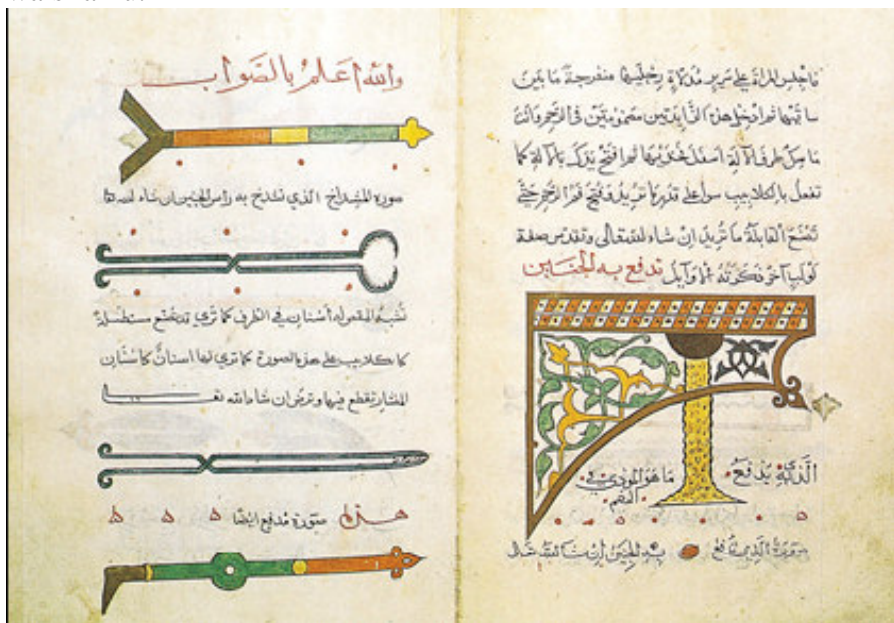 فأجلس المرأة على سرير مدلاة رجليها منفرجة ما بين
ساقيها ثم أدخل هذه الزائدتين مضمومتين في الرحم وأنت
ماسك طرف الآلة أسفل فخذيها ثم افتح يدك بالآلة كما
تفعل بالكلاليب سواء على قدر ما تريد فتح فم الرحم حتى
تصنع القابلة ما تريد إن شاء الله تعالى وتقدس صفة
لولب آخر ذكرته الأوايل تدفع به الجنين
الذي يدفع ما هو المؤذي في
الفم
صورة الذي تدفع به الجنين إن شاء الله تعالى
والله أعلم بالصواب
صورة المشداخ الذي تشدخ به رأس الجنين إن شاء الله
تشبه المقص له أسنان في الطرف كما ترى قد تصنع مستطيلة
كالكلاليب على هذه الصورة كما ترى لها أسنان كأسنان
المنشار تقطع فيها وترض إن شاء الله
هذه صورة مدفع أيضا